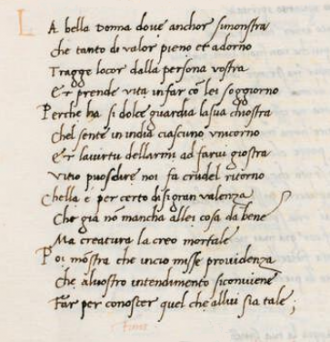 LA bella donna dove anchor simonstra
che tanto di valor pieno et adorno
Tragge locor dalla persona vostra
Et prende vita in far co lei soggiorno
Perche ha si dolce guardia la sua chiostra
Chel sente in india ciascuno unicorno
Et la virtu dellarmi ad farvi giostra
Vitio puosedire noi fa crudel ritorno
Chella e per certo di sigran valenza
Che gia no mancha allei cosa da bene
Ma creatura la creo mortale
Poi mostra che incio misse providenza
Che alvostro intendimento siconviene
Far per conoscer quel che allui sia tale ;